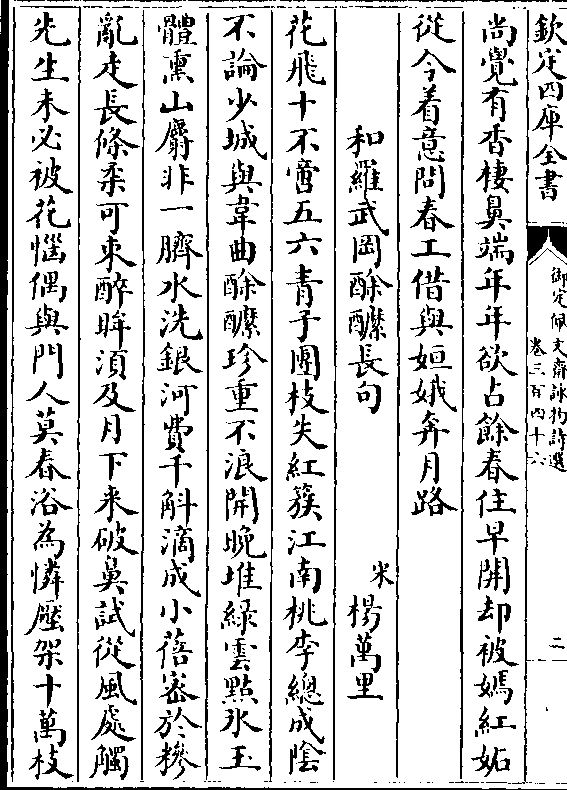 欽定四庫全書
御定佩文齋詠物詩選
卷三百四十六
二
尚覺有香棲鼻端年年欲占餘春住早開却被嫣紅妬
從今着意問春工借與姮娥奔月路
和羅武岡酴醾長句
宋
楊萬里
花飛十不啻五六青子團枝失紅簇江南桃李總成陰
不論少城與韋曲酴醾珍重不浪開晚堆綠雲點氷玉
體熏山麝非一臍水洗銀河費千斛滴成小蓓密於糝
亂走長條柔可束醉眸須及月下来破鼻試從風處觸
先生未必被花惱偶與門人莫春浴為憐壓架十萬枝